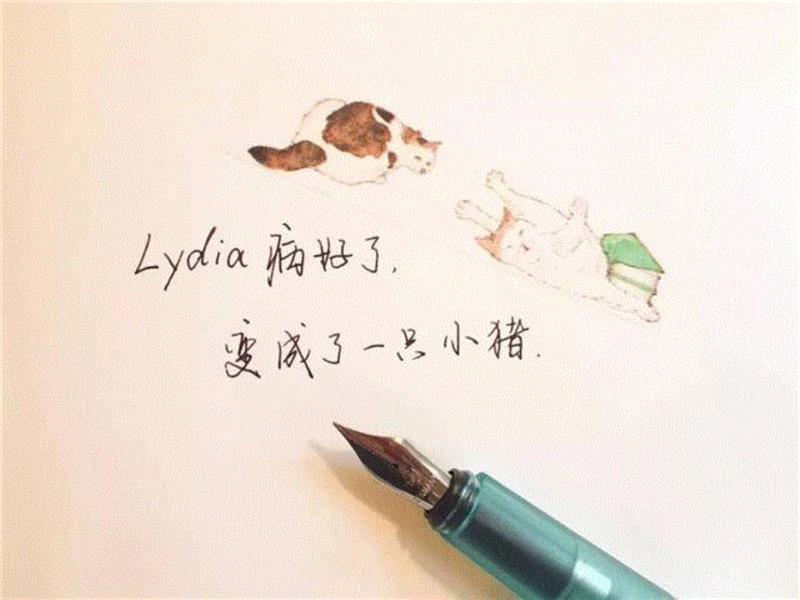 Lydia 病好了,
变成了一只小猪.